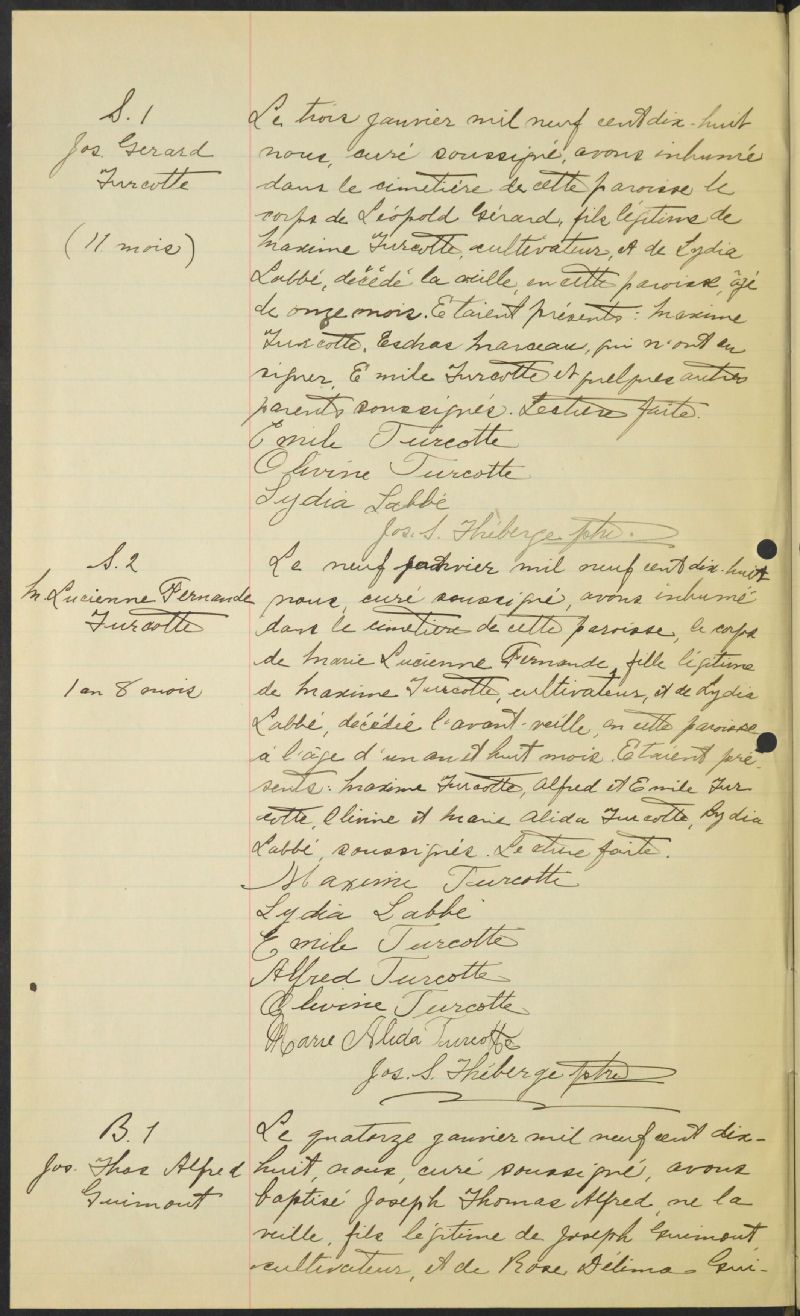 S. 1
Jos. Gerard
Turcotte
(11 mois)
Le trois janvier mil neuf cent dix-huit
nous, curé soussigné, avons inhumé
dans le cimetière de cette paroisse le
corps de Léopold Gérard, fils légitime de
Maxime Turcotte, cultivateur, et de Lydia
Labbé, décédé la veille, en cette paroisse, âgé
de onze mois. Etaient présents: Maxime
Turcotte, Esdras Marceau, qui n'ont su
signer, Emile Turcotte et quelques autres
parents soussignés. Lecture faite.
Emile Turcotte
Olivine Turcotte
Lydia Labbé
Jos. S. Théberge ptre.
S. 2
M. Lucienne Fernande
Turcotte
1 an 8 mois
Le neuf janvier mil neuf cent dix-huit
nous, curé soussigné, avons inhumé
dans le cimetière de cette paroisse, le corps
de Marie Lucienne Fernande, fille légitime
de Maxime Turcotte, cultivateur, et de Lydia
Labbé, décédée l'avant-veille, en cette paroisse
à l'âge d'un an et huit mois. Etaient pré-
sents: Maxime Turcotte, Alfred et Emile Tur
cotte, Olivine et Marie Alida Turcotte, Lydia
Labbé, soussignés. Lecture faite.
Maxime Turcotte
Lydia Labbé
Emile Turcotte
Alfred Turcotte
Olivine Turcotte
Marie Alida Turcotte
Jos. S. Théberge ptre
B. 1
Jos. Thos Alfred
Guimont
Le quatorze janvier mil neuf cent dix-
huit, nous, curé soussigné, avons
baptisé Joseph Thomas Alfred, né la
veille, fils légitime de Joseph Guimont,
cultivateur, et de Rose Délima Gui-